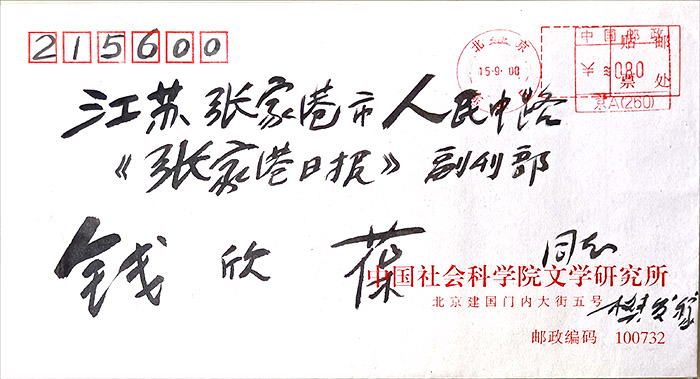 215600
北京
15.9.00
中国邮政
贴邮票处
¥≈080
京A(260)
江苏张家港市人民中路
《张家港日报》副刊部
钱欣葆 同志
中国社会科学院文学研究所
北京建国门内大街五号 樊发稼
邮政编码 100732